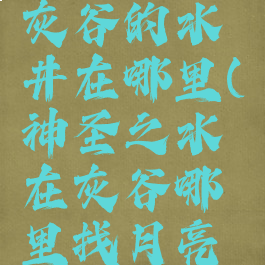 灰谷的水
井在哪里(
神圣之水
在灰谷哪
里找月亮